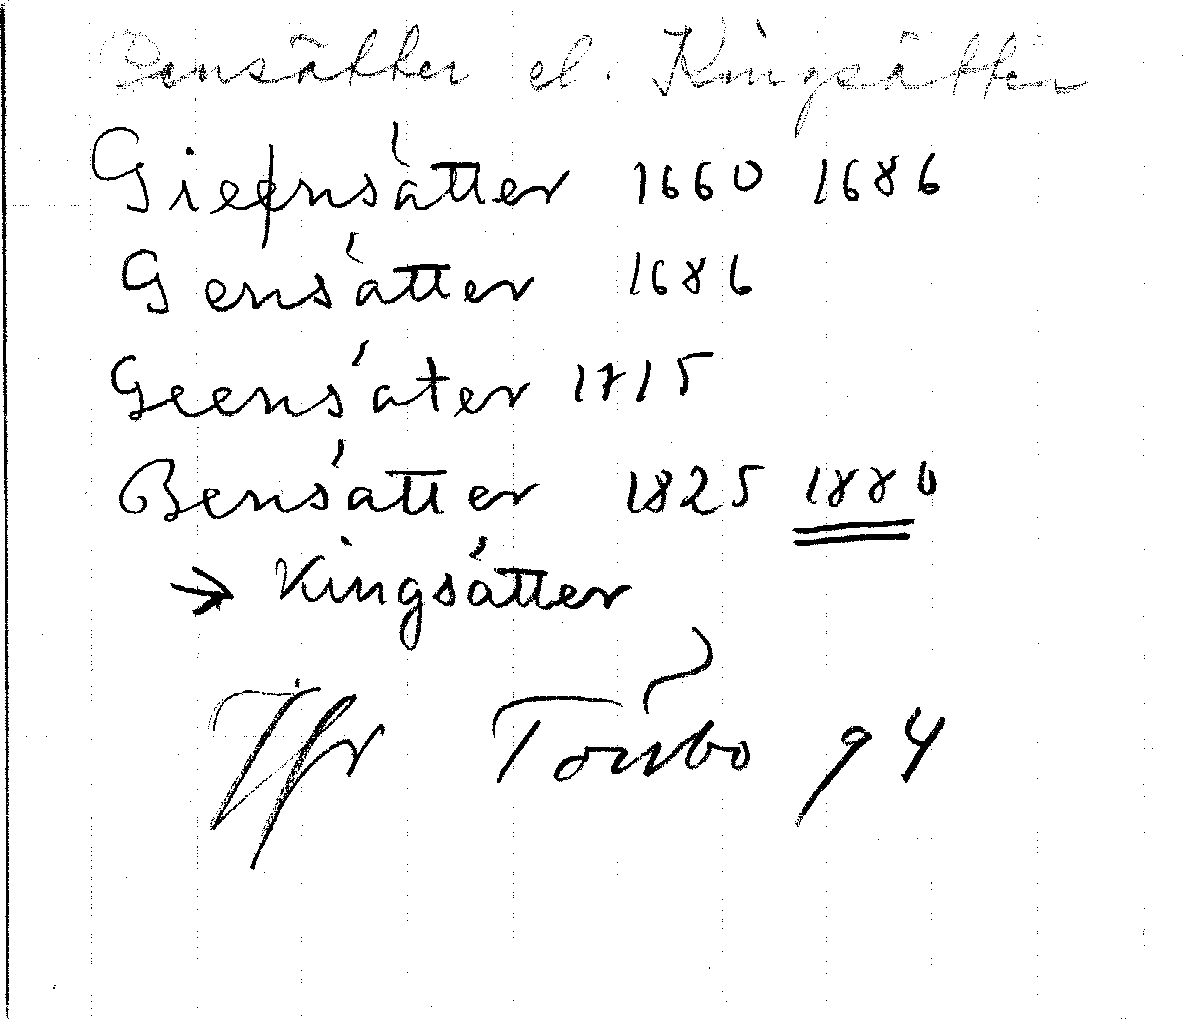 Bensätter el. Kingsätter
Gieensätter 1660 1686
Gensätter 1686
Geensäter 1715
Bensätter 1825 1880
→ Kingsätter
Jfr Torsbo 94